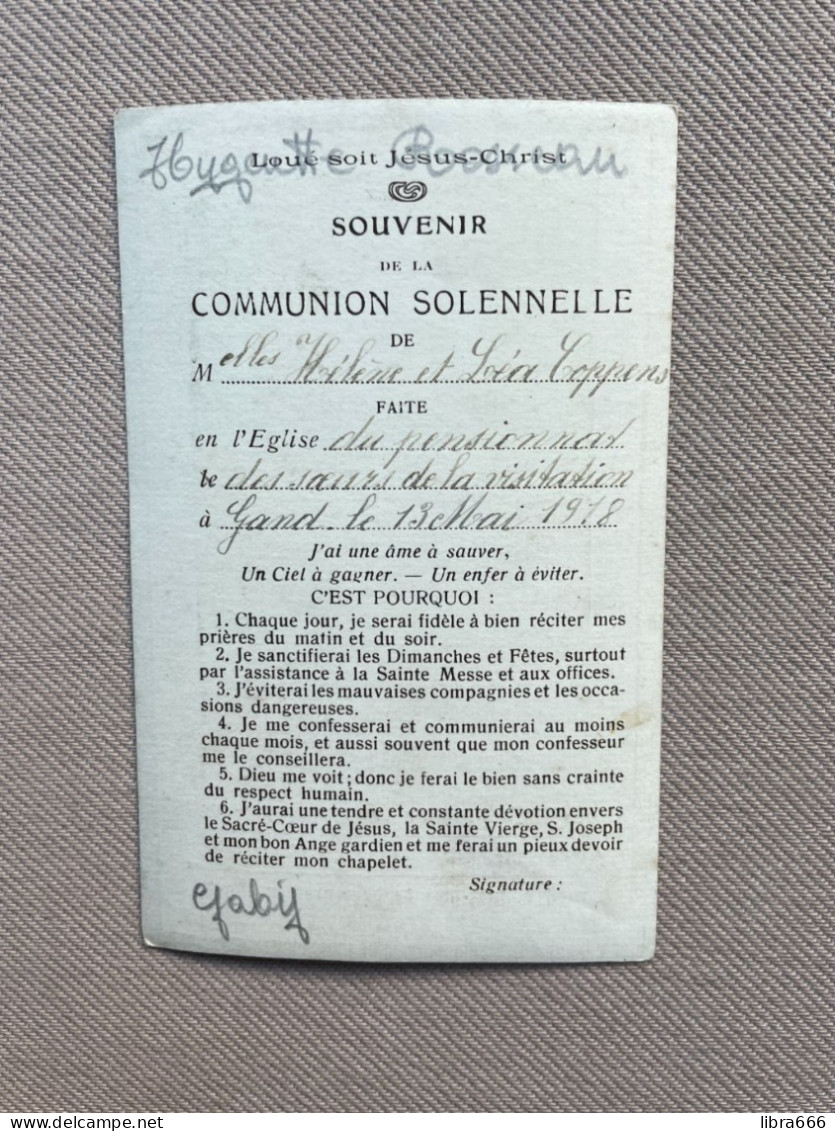 Hyguette Roosman
Loué soit Jésus-Christ
SOUVENIR
DE LA
COMMUNION SOLENNELLE
DE
Melles Hélène et Léa Coppens
FAITE
en l'Eglise du pensionnat
le des sœurs de la visitation
à Gand. le 13 Mai 1918
J'ai une âme à sauver,
Un Ciel à gagner. — Un enfer à éviter.
C'EST POURQUOI :
1. Chaque jour, je serai fidèle à bien réciter mes
prières du matin et du soir.
2. Je sanctifierai les Dimanches et Fêtes, surtout
par l'assistance à la Sainte Messe et aux offices.
3. J'éviterai les mauvaises compagnies et les occa-
sions dangereuses.
4. Je me confesserai et communierai au moins
chaque mois, et aussi souvent que mon confesseur
me le conseillera.
5. Dieu me voit ; donc je ferai le bien sans crainte
du respect humain.
6. J'aurai une tendre et constante dévotion envers
le Sacré-Cœur de Jésus, la Sainte Vierge, S. Joseph
et mon bon Ange gardien et me ferai un pieux devoir
de réciter mon chapelet.
Signature :
Gaby
libra666